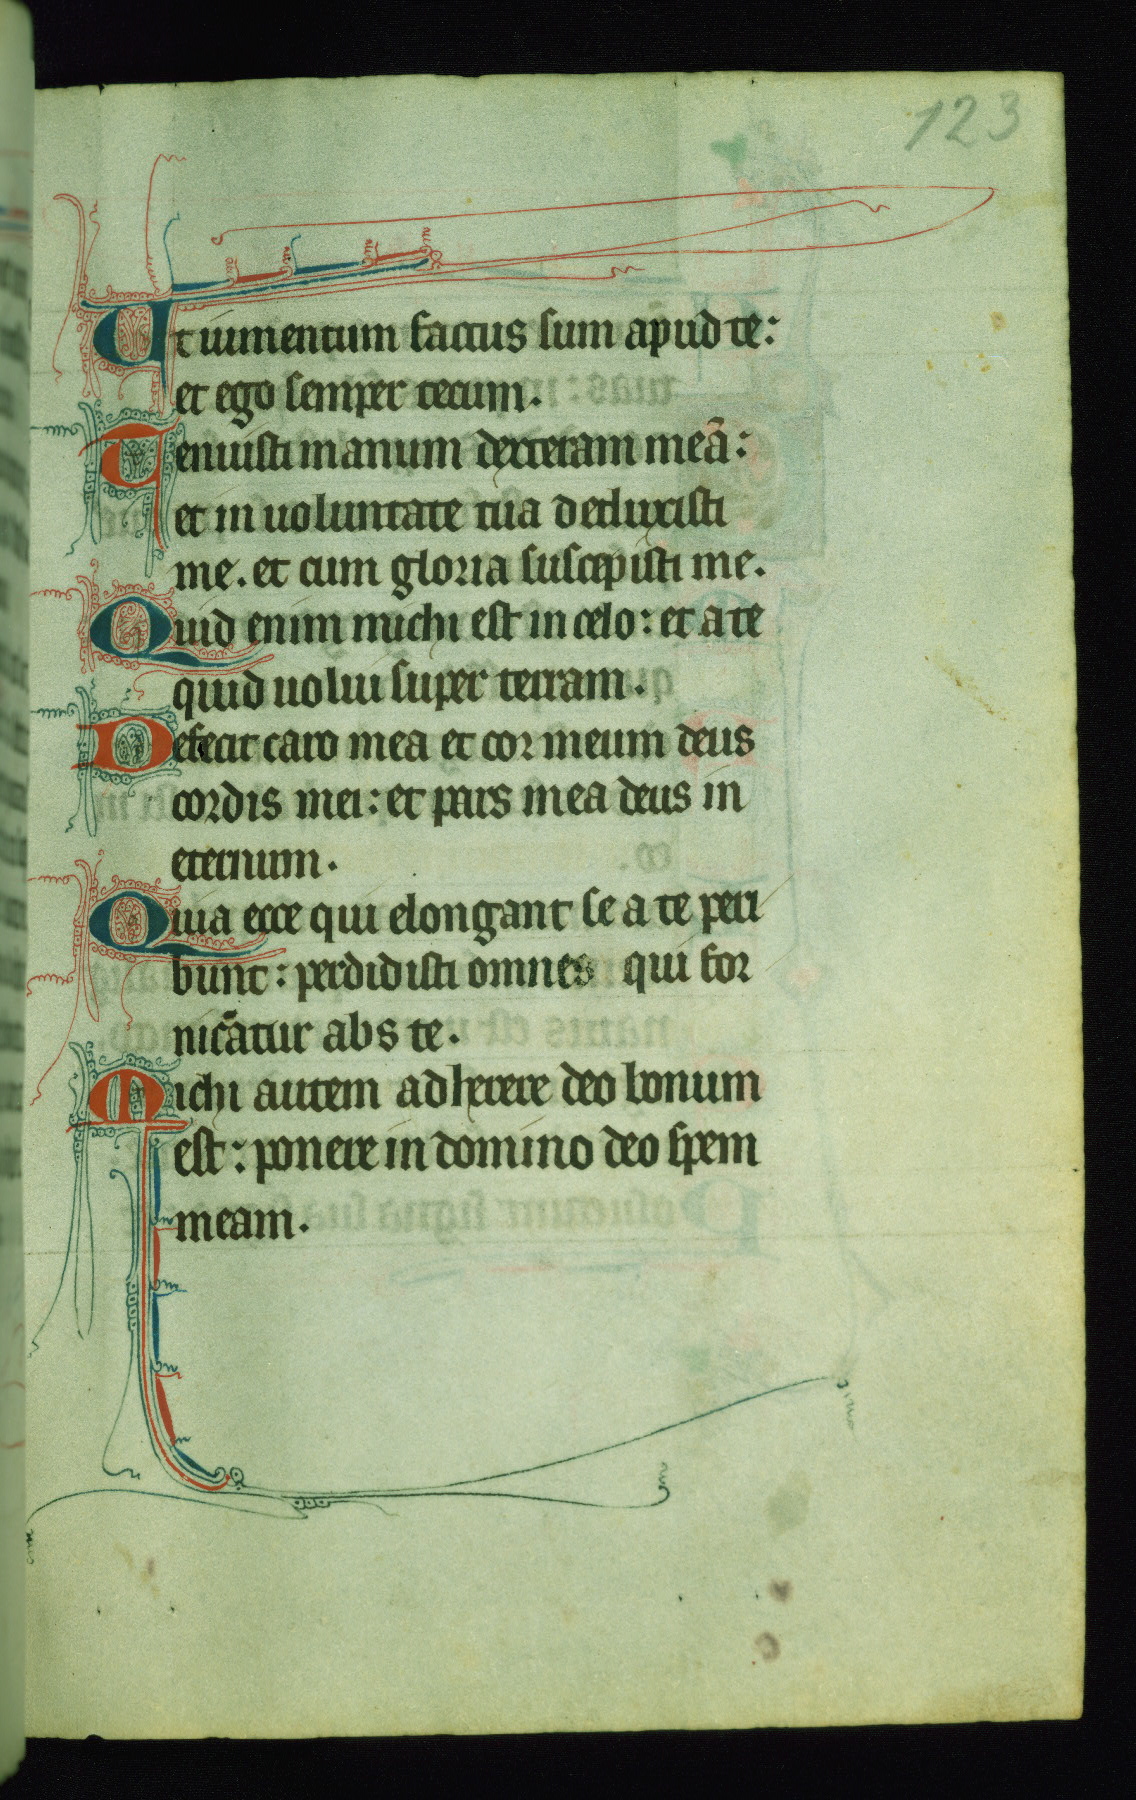 123
Ut iumentum factus sum apud te:
et ego semper tecum.
Tenuisti manum dexteram meā:
et in uoluntate tua deduxisti
me. et cum gloria suscepisti me.
Quid enim michi est in celo: et a te
quid uolui super terram.
Defecit caro mea et cor meum deus
cordis mei: et pars mea deus in
eternum.
Quia ecce qui elongant se a te peri
bunt: perdidisti omnes qui for
nicātur abs te.
Michi autem adherere deo bonum
est: ponere in domino deo spem
meam.